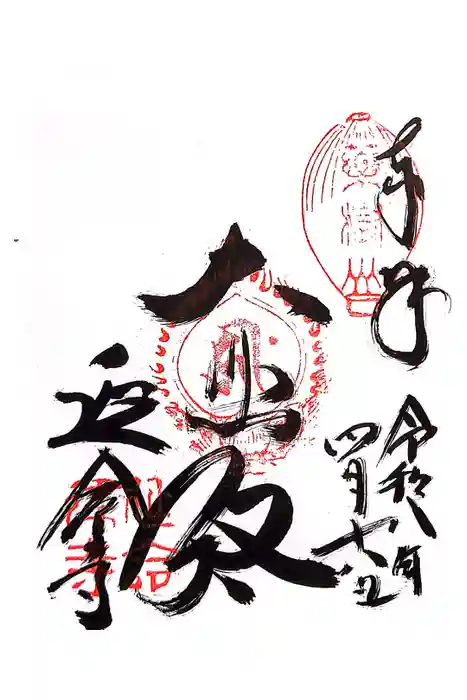 奉拝
令和八年
四月十六日
大悲殿
延命寺